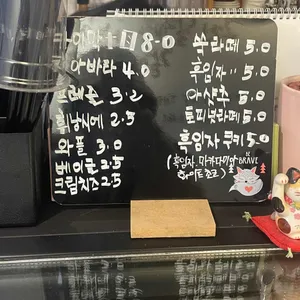 8-0
아바라 4.0
2.5
와플 3.0
베이글 2.5
크림치즈 2.5
쑥라떼 5.0
흑임자·· 5.0
아샷추 5.0
토피넛라떼 5.0
흑임자 쿠키 5.0
(흑임자, 마카다미아
화이트초코)
BE
BRAVE